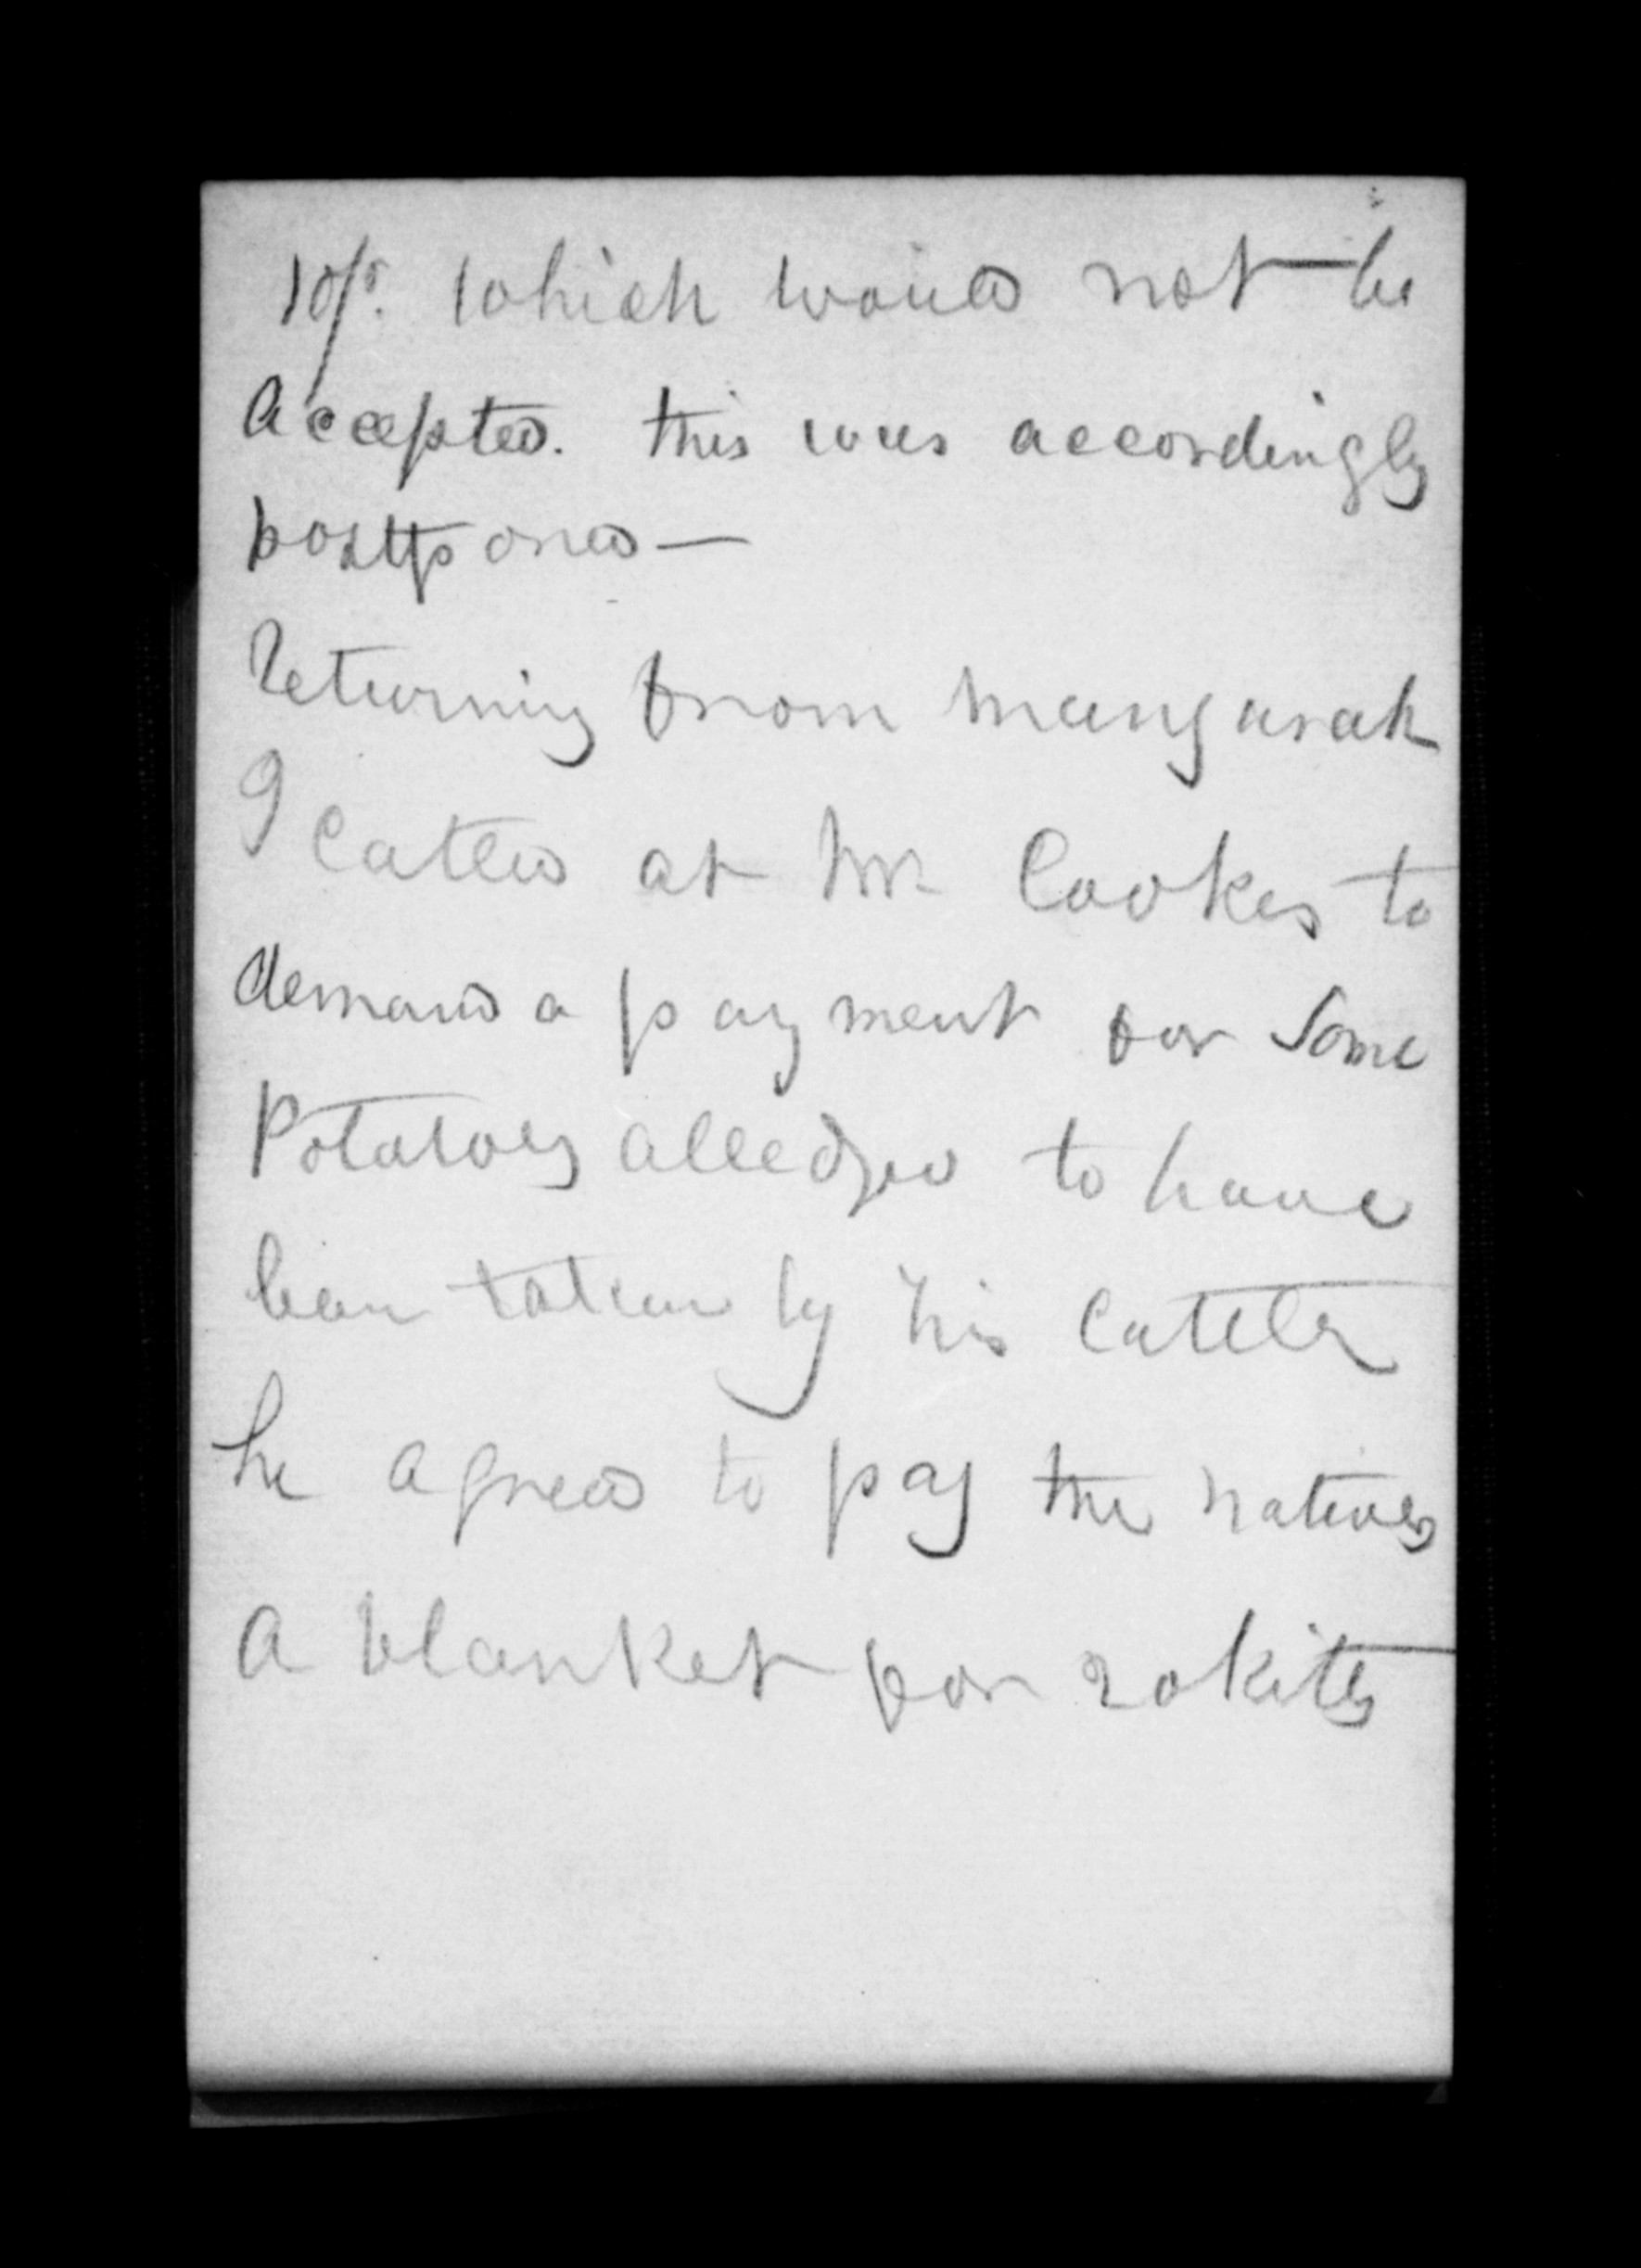 10/s. which would not be
Accepted. this was accordingly
postponed —
Returning from mangarah
I called at Mr Cookes to
demand a payment for Some
Potatoes alledged to have
been taken by his Cattle
he agreed to pay the natives
a blanket for 20 kitts